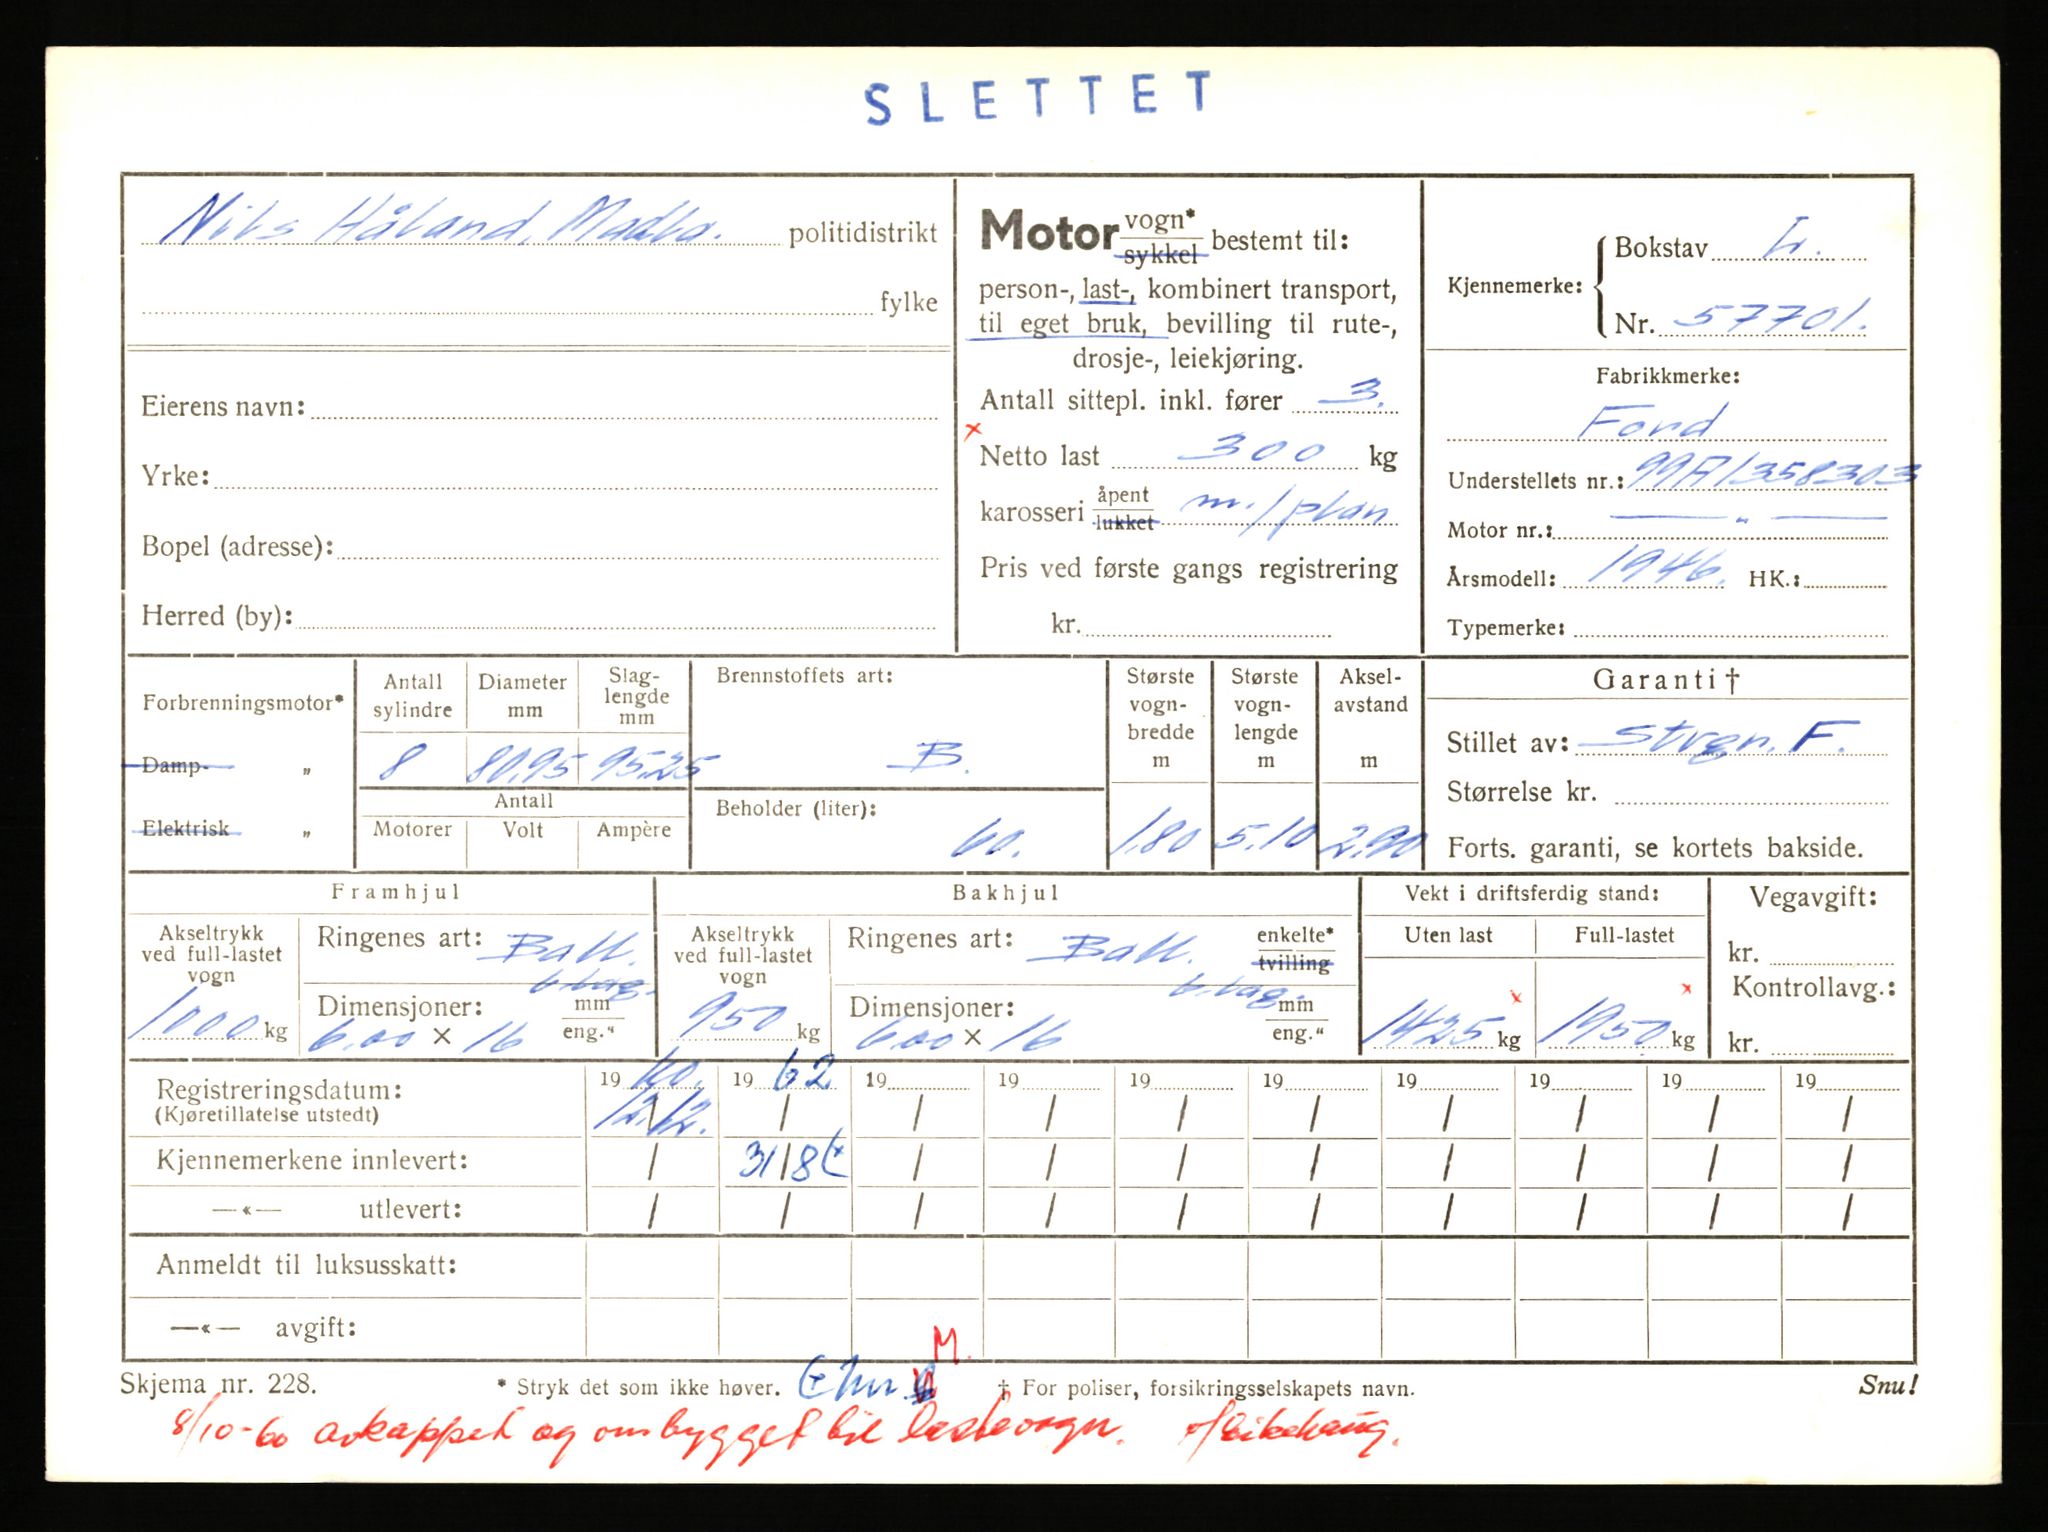 SLETTET
Nils Håland, Madla. politidistrikt
fylke
Eierens navn:
Yrke:
Bopel (adresse):
Herred (by):
Motor vogn* sykkel bestemt til:
person-, last-, kombinert transport,
til eget bruk, bevilling til rute-,
drosje-, leiekjøring.
Antall sittepl. inkl. fører 3.
x
Netto last 300 kg
karosseri åpent lukket m./plan
Pris ved første gangs registrering
kr.
Kjennemerke: { Bokstav L.
Nr. 57701.
Fabrikkmerke:
Ford
Understellets nr.: 99A1358303
Motor nr.: — " —
Årsmodell: 1946. HK.:
Typemerke:
Forbrenningsmotor*
Damp- „
Elektrisk „
Antall sylindre 8
Diameter mm 80.95
Slag-lengde mm 95.25
Antall
Motorer Volt Ampère
Brennstoffets art:
B.
Beholder (liter):
60.
Største vogn-bredde m 1.80
Største vogn-lengde m 5.10
Aksel-avstand m 2.90
Garanti †
Stillet av: Strgn. F.
Størrelse kr.
Forts. garanti, se kortets bakside.
Framhjul
Akseltrykk ved full-lastet vogn
1000 kg
Ringenes art: Ball.
6 lag.
Dimensjoner: mm
6.00 × 16 eng."
Bakhjul
Akseltrykk ved full-lastet vogn
950 kg
Ringenes art: Ball. enkelte* tvilling
6. lag.
Dimensjoner: mm
6.00 × 16 eng."
Vekt i driftsferdig stand:
Uten last Full-lastet
x x
1425 kg 1950 kg
Vegavgift:
kr.
Kontrollavg.:
kr.
Registreringsdatum: 19 60. 19 62 19 19 19 19 19 19 19 19
(Kjøretillatelse utstedt) 12/12. / / / / / / / / /
Kjennemerkene innlevert: / 31/8 / / / / / / / /
—«— utlevert: / / / / / / / / / /
Anmeldt til luksusskatt:
—«— avgift:
M.
Skjema nr. 228. * Stryk det som ikke høver. † For poliser, forsikringsselskapets navn. Snu!
8/10-60 avkappet og ombygget til lastevogn.